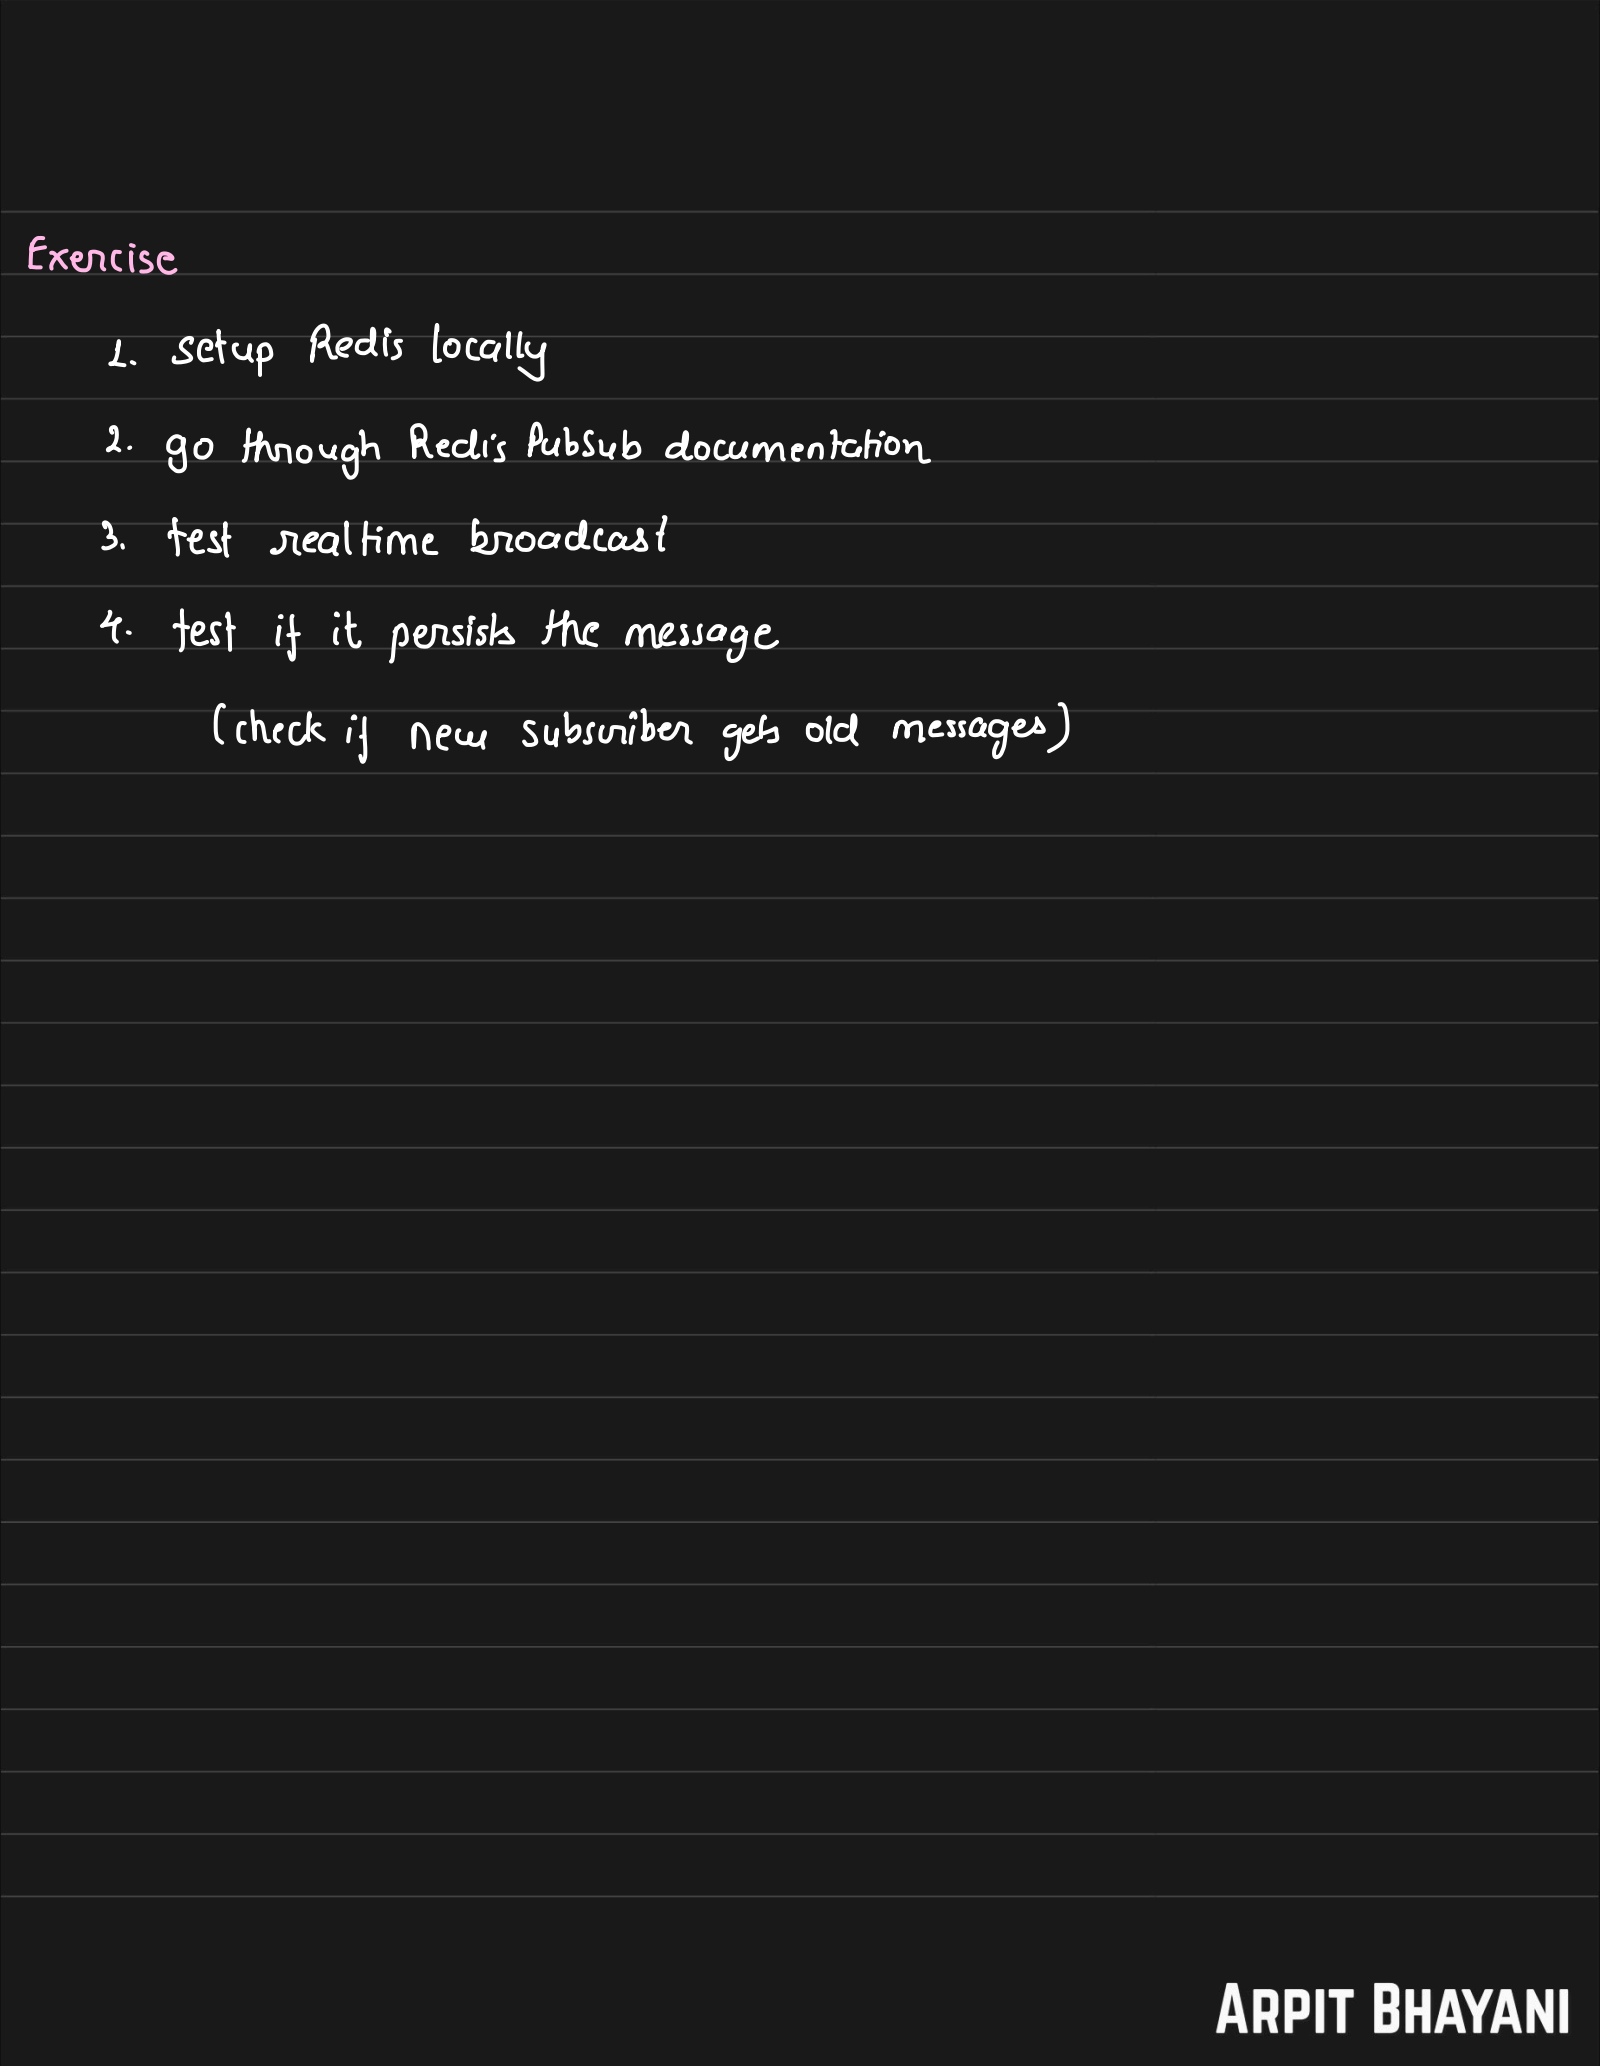 Exercise
1. setup Redis locally
2. go through Redis PubSub documentation
3. test realtime broadcast
4. test if it persists the message
(check if new subscriber gets old messages)
ARPIT BHAYANI